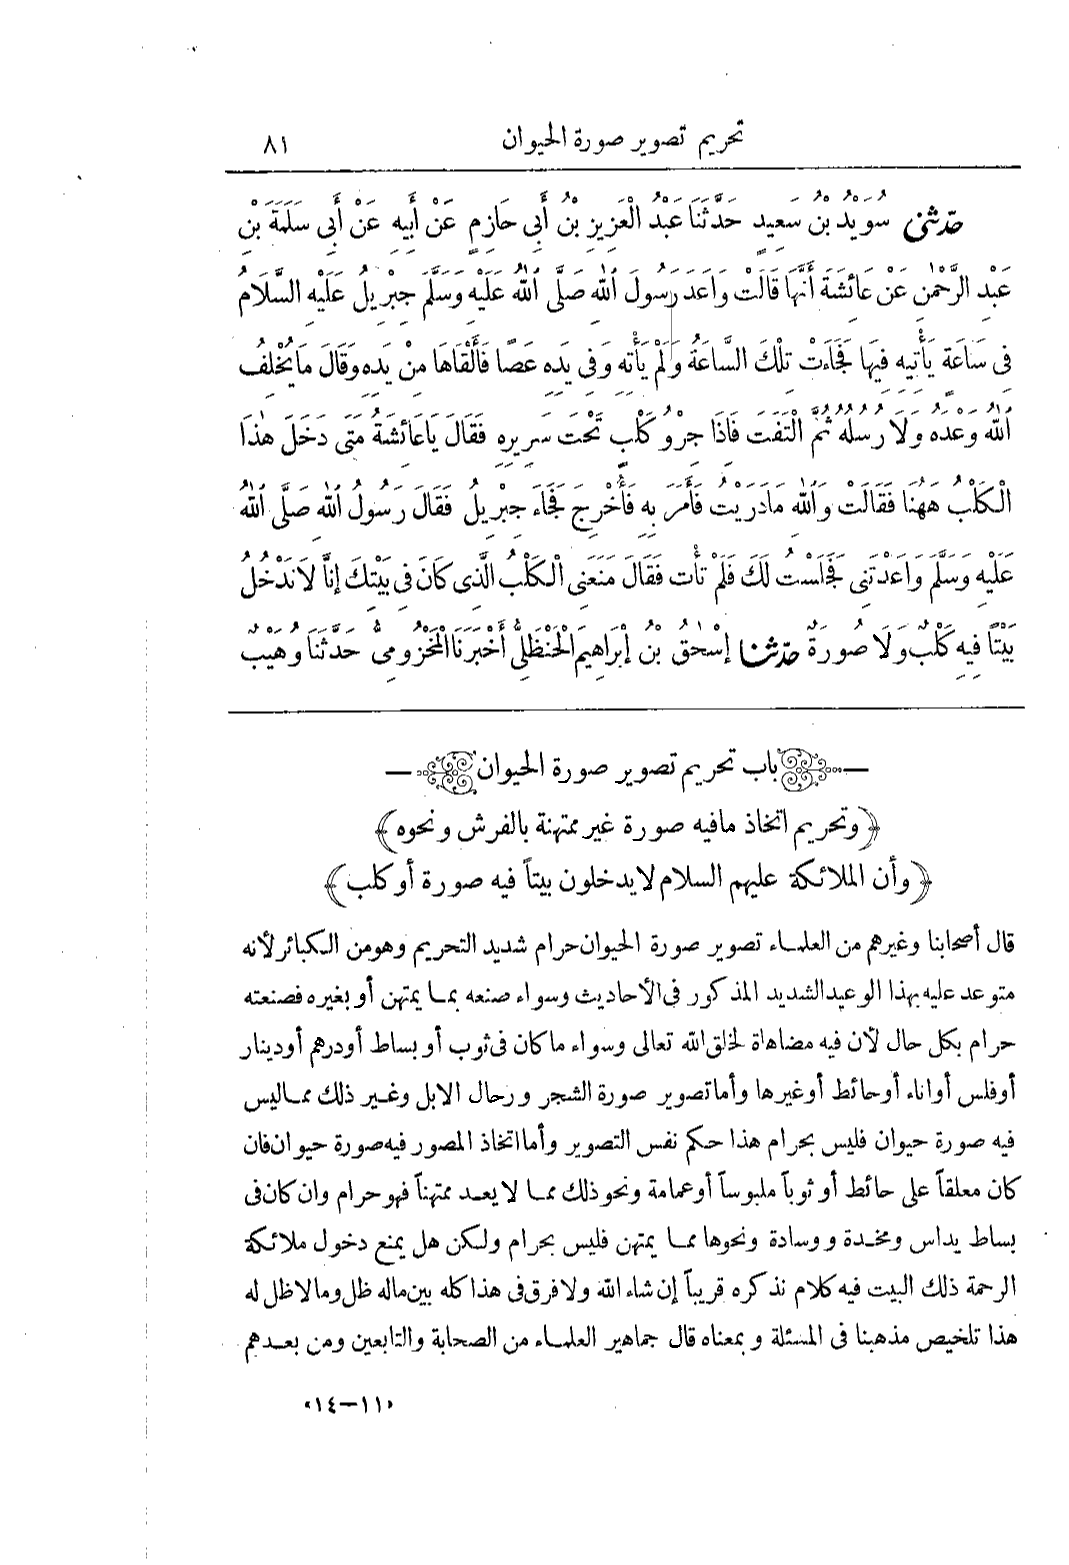 تحريم تصوير صورة الحيوان ٨١
حَدَّثَنِي سُوَيْدُ بْنُ سَعِيدٍ حَدَّثَنَا عَبْدُ الْعَزِيزِ بْنُ أَبِي حَازِمٍ عَنْ أَبِيهِ عَنْ أَبِي سَلَمَةَ بْنِ
عَبْدِ الرَّحْمٰنِ عَنْ عَائِشَةَ أَنَّهَا قَالَتْ وَاعَدَ رَسُولَ اللهِ صَلَّى اللهُ عَلَيْهِ وَسَلَّمَ جِبْرِيلُ عَلَيْهِ السَّلَامُ
فِي سَاعَةٍ يَأْتِيهِ فِيهَا فَجَاءَتْ تِلْكَ السَّاعَةُ وَلَمْ يَأْتِهِ وَفِي يَدِهِ عَصًا فَأَلْقَاهَا مِنْ يَدِهِ وَقَالَ مَا يُخْلِفُ
اللهُ وَعْدَهُ وَلَا رُسُلُهُ ثُمَّ الْتَفَتَ فَإِذَا جِرْوُ كَلْبٍ تَحْتَ سَرِيرِهِ فَقَالَ يَا عَائِشَةُ مَتَى دَخَلَ هٰذَا
الْكَلْبُ هَهُنَا فَقَالَتْ وَاللهِ مَا دَرَيْتُ فَأَمَرَ بِهِ فَأُخْرِجَ فَجَاءَ جِبْرِيلُ فَقَالَ رَسُولُ اللهِ صَلَّى اللهُ
عَلَيْهِ وَسَلَّمَ وَاعَدْتَنِي فَجَلَسْتُ لَكَ فَلَمْ تَأْتِ فَقَالَ مَنَعَنِي الْكَلْبُ الَّذِي كَانَ فِي بَيْتِكَ إِنَّا لَا نَدْخُلُ
بَيْتًا فِيهِ كَلْبٌ وَلَا صُورَةٌ حَدَّثَنَا إِسْحٰقُ بْنُ إِبْرَاهِيمَ الْحَنْظَلِيُّ أَخْبَرَنَا الْمَخْزُومِيُّ حَدَّثَنَا وُهَيْبٌ
باب تحريم تصوير صورة الحيوان
﴿وتحريم اتخاذ مافيه صورة غير ممتهنة بالفرش ونحوه﴾
﴿وأن الملائكة عليهم السلام لايدخلون بيتاً فيه صورة أو كلب﴾
قال أصحابنا وغيرهم من العلماء تصوير صورة الحيوان حرام شديد التحريم وهو من الكبائر لأنه
متوعد عليه بهذا الوعيد الشديد المذكور فى الأحاديث وسواء صنعه بما يمتهن أو بغيره فصنعته
حرام بكل حال لأن فيه مضاهاة لخلق الله تعالى وسواء ما كان فى ثوب أو بساط أو درهم أو دينار
أو فلس أو اناء أو حائط أو غيرها وأما تصوير صورة الشجر ورحال الابل وغير ذلك مما ليس
فيه صورة حيوان فليس بحرام هذا حكم نفس التصوير وأما اتخاذ المصور فيه صورة حيوان فان
كان معلقاً على حائط أو ثوباً ملبوساً أو عمامة ونحو ذلك مما لا يعد ممتهناً فهو حرام وان كان فى
بساط يداس ومخدة ووسادة ونحوها مما يمتهن فليس بحرام ولكن هل يمنع دخول ملائكة
الرحمة ذلك البيت فيه كلام نذكره قريباً إن شاء الله ولا فرق فى هذا كله بين ماله ظل وما لا ظل له
هذا تلخيص مذهبنا فى المسئلة وبمعناه قال جماهير العلماء من الصحابة والتابعين ومن بعدهم
«١١ – ١٤»